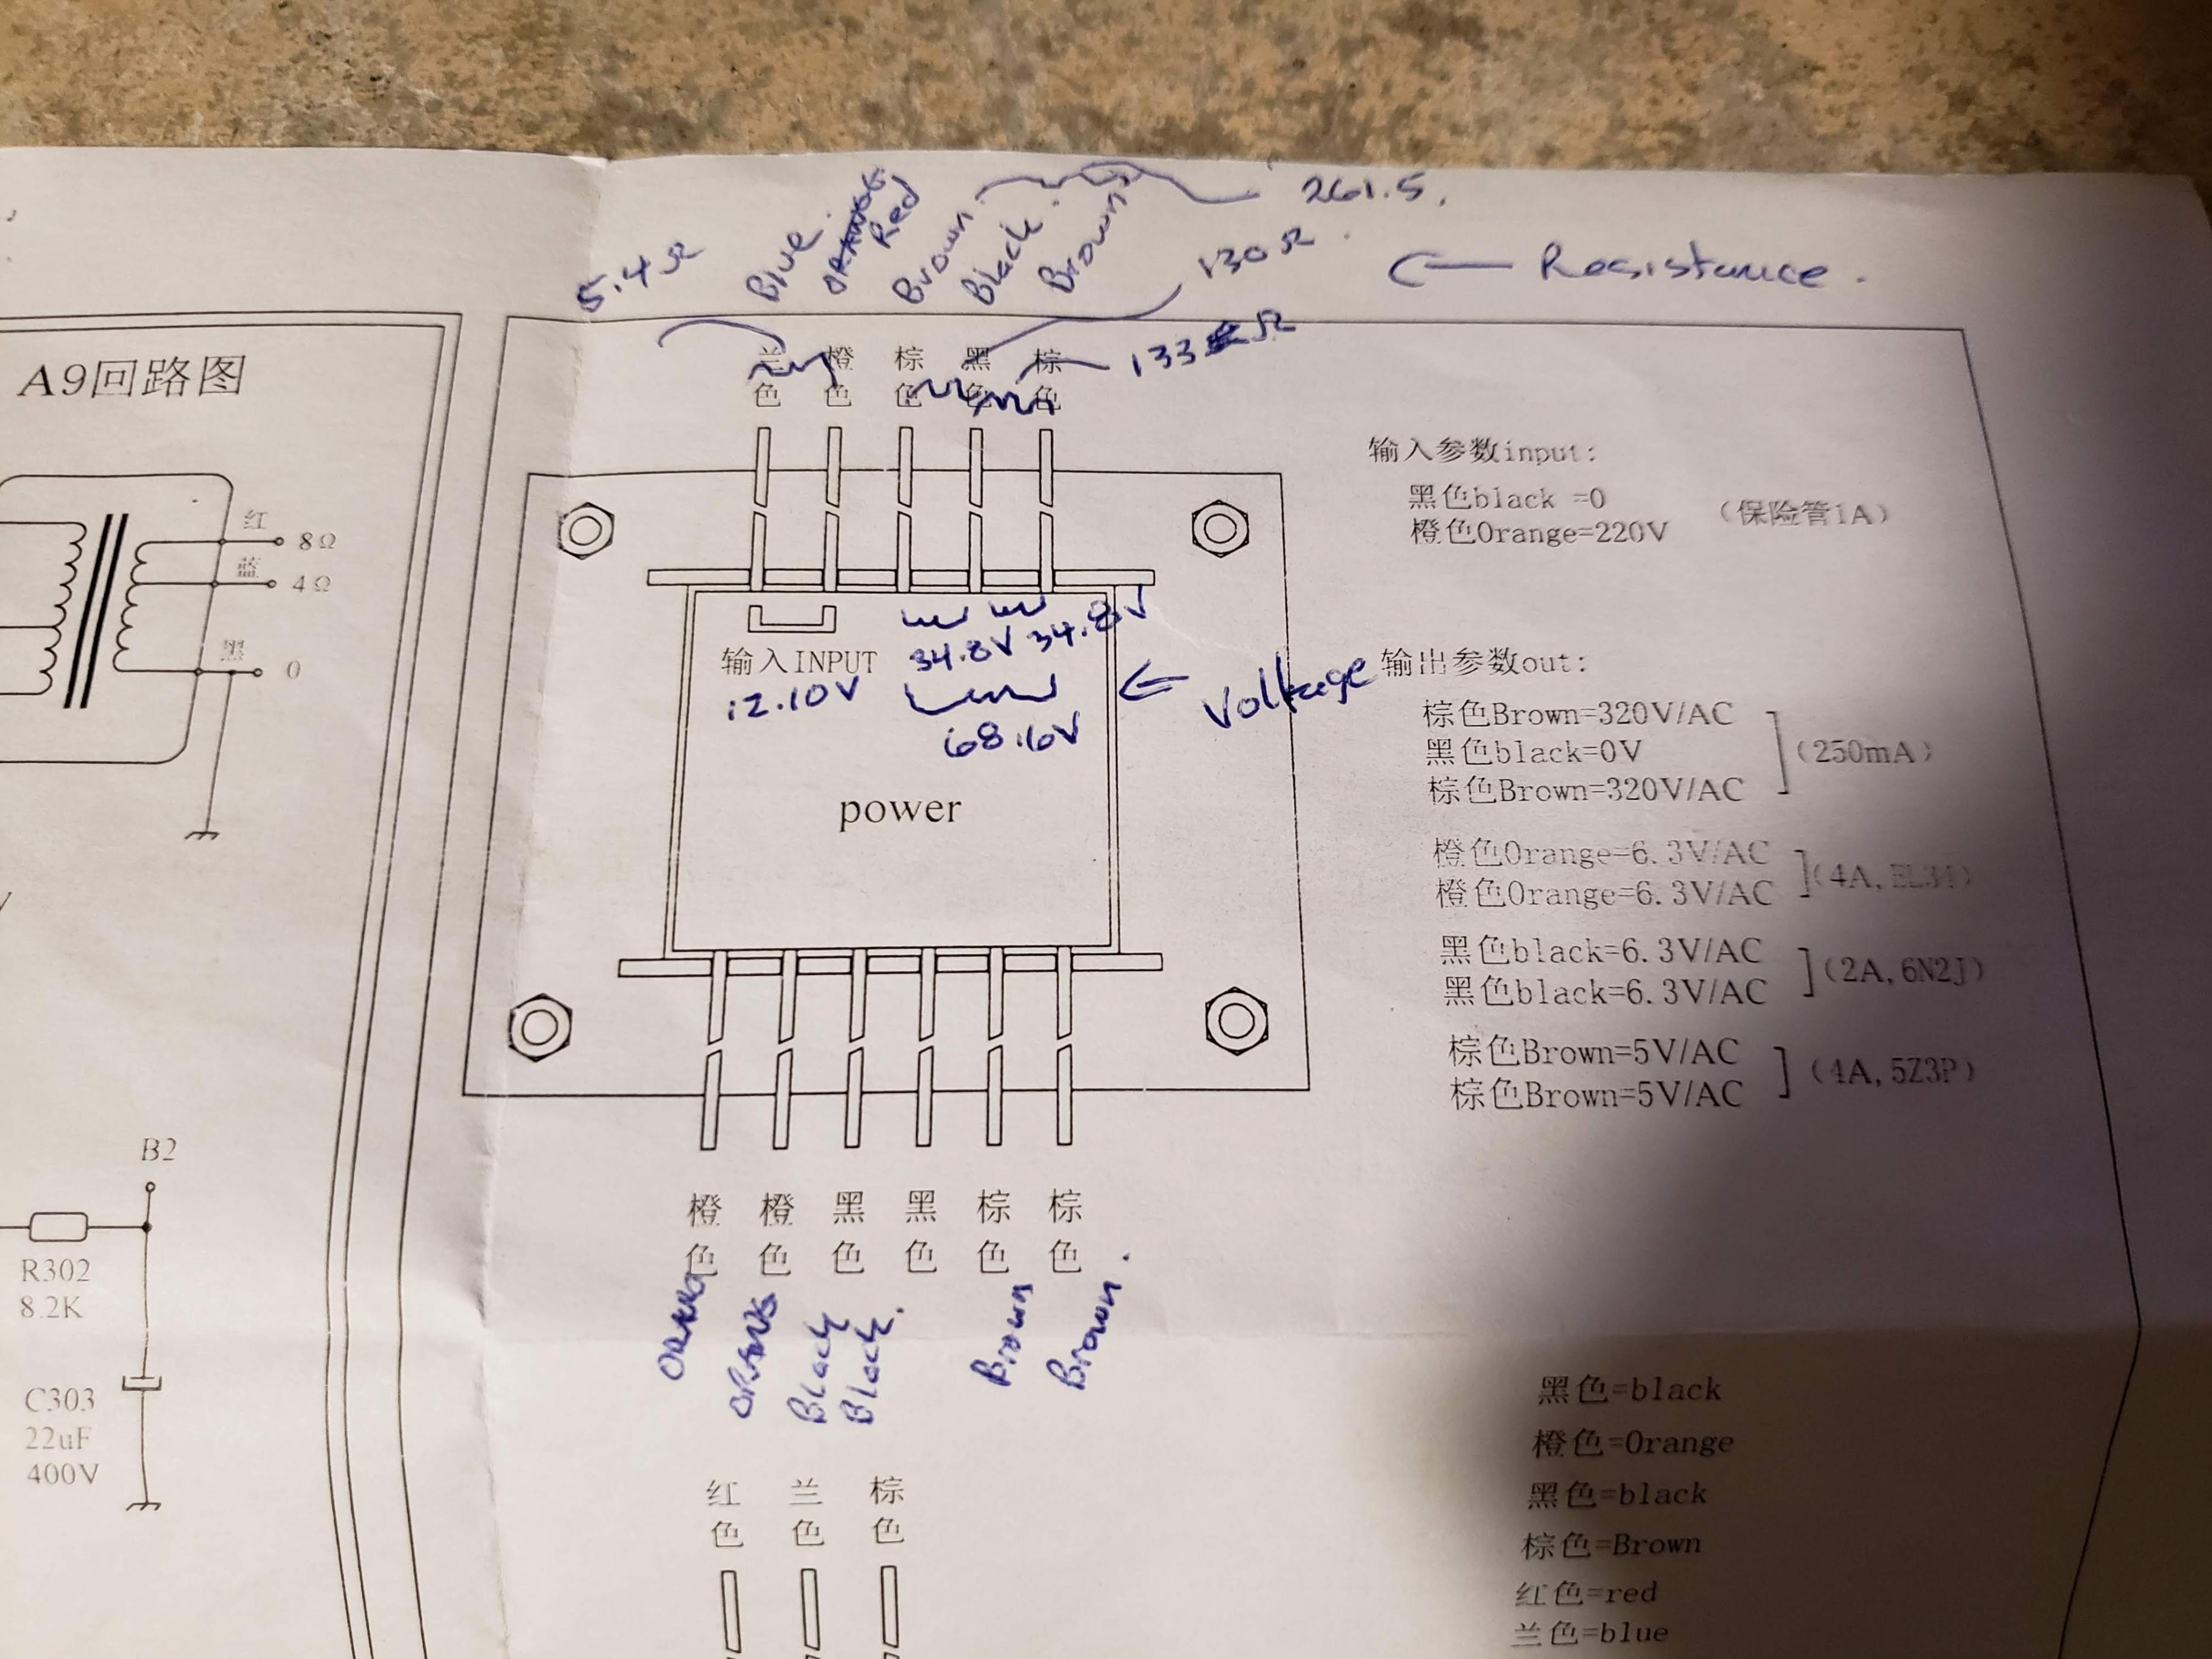 261.5.
Blue
ORANGE
Red
Brown
Black
Brown
5.4Ω
130Ω
← Resistance.
133Ω
A9回路图
兰色
橙色
棕色
黑色
棕色
红
8Ω
蓝
4Ω
黑
0
输入参数input:
黑色black =0
橙色Orange=220V
(保险管1A)
34.8V
34.8V
输入INPUT
12.10V
68.16V
← Voltage
power
输出参数out:
棕色Brown=320V/AC
黑色black=0V
棕色Brown=320V/AC
(250mA)
橙色Orange=6.3V/AC
橙色Orange=6.3V/AC
(4A,EL34)
黑色black=6.3V/AC
黑色black=6.3V/AC
(2A,6N2J)
棕色Brown=5V/AC
棕色Brown=5V/AC
(4A,5Z3P)
B2
R302
8.2K
C303
22uF
400V
橙色
橙色
黑色
黑色
棕色
棕色
Black
Black.
Brown
Brown.
红色
兰色
棕色
黑色=black
橙色=Orange
黑色=black
棕色=Brown
红色=red
兰色=blue